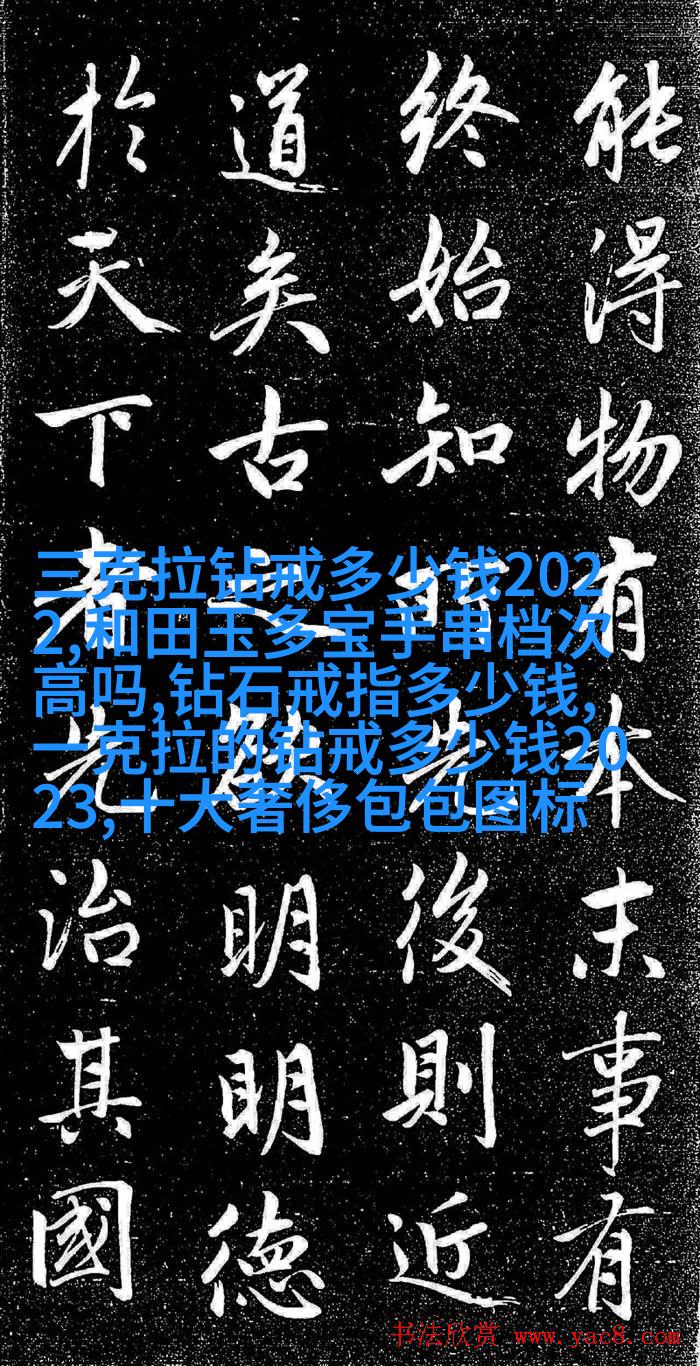 能得物有本末事有
終始知所先後則近
道矣古之欲明明德
於天下者先治其國
三克拉钻戒多少钱202
2,和田玉多宝手串档次
高吗,钻石戒指多少钱,
一克拉的钻戒多少钱20
23,十大奢侈包包图标
书法欣赏 www.yac8.com